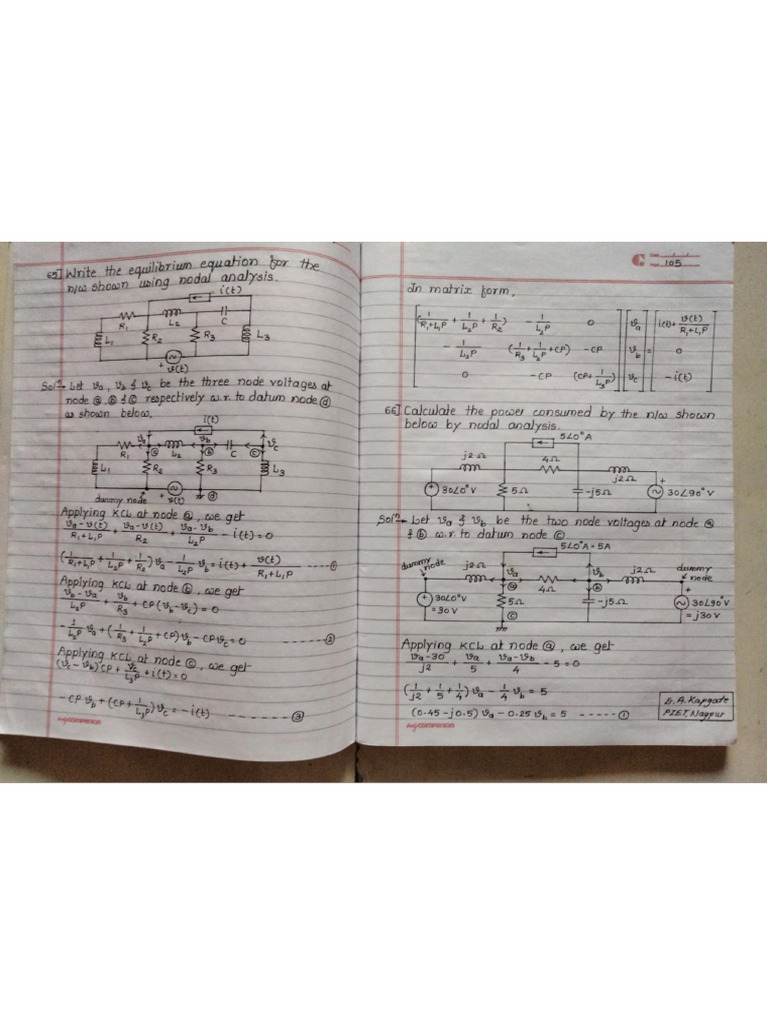 65] Write the equilibrium equation for the
n/w shown using nodal analysis.
i(t)
R₁ L₂ C
L₁ R₂ R₃ L₃
+ v(t)
Solⁿ- Let va, vb & vc be the three node voltages at
node ⓐ, ⓑ & ⓒ respectively w.r. to datum node ⓓ
as shown below.
i(t)
va vb vc
R₁ ⓐ L₂ ⓑ C ⓒ
L₁ R₂ R₃ L₃
dummy node + v(t) ⓓ
Applying KCL at node ⓐ, we get
(va-v(t))/(R₁+L₁P) + (va-v(t))/R₂ + (va-vb)/(L₂P) - i(t) = 0
(1/(R₁+L₁P) + 1/(L₂P) + 1/R₂) va - 1/(L₂P) vb = i(t) + v(t)/(R₁+L₁P) ------ ①
Applying KCL at node ⓑ, we get
(vb-va)/(L₂P) + vb/R₃ + CP(vb-vc) = 0
-1/(L₂P) va + (1/R₃ + 1/(L₂P) + CP) vb - CPvc = 0 ------ ②
Applying KCL at node ⓒ, we get
(vc-vb)CP + vc/(L₃P) + i(t) = 0
-CPvb + (CP + 1/(L₃P)) vc = -i(t) ------ ③
companion
105
In matrix form,
(1/(R₁+L₁P) + 1/(L₂P) + 1/R₂) -1/(L₂P) 0 va i(t)+ v(t)/(R₁+L₁P)
-1/(L₂P) (1/R₃ + 1/(L₂P) + CP) -CP vb = 0
0 -CP (CP + 1/(L₃P)) vc -i(t)
66] Calculate the power consumed by the n/w shown
below by nodal analysis.
5∠0° A
j2Ω 4Ω j2Ω
+ 30∠0° V 5Ω -j5Ω + 30∠90° V
Solⁿ- Let va & vb be the two node voltages at node ⓐ
& ⓑ w.r. to datum node ⓒ
5∠0° A = 5A
dummy node j2Ω va vb j2Ω dummy node
ⓐ 4Ω ⓑ
+ 30∠0° V = 30V 5Ω -j5Ω + 30∠90° V = j30V
ⓒ
Applying KCL at node ⓐ, we get
(va-30)/j2 + va/5 + (va-vb)/4 - 5 = 0
(1/j2 + 1/5 + 1/4) va - 1/4 vb = 5
(0.45-j0.5) va - 0.25 vb = 5 ------ ①
A. Kapgate
Nagpur
companion